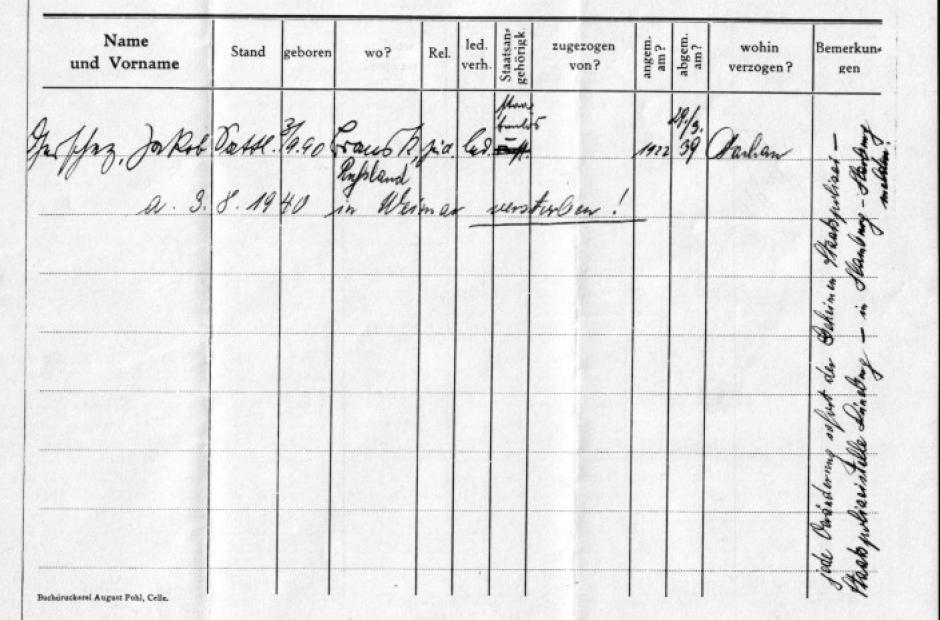 Name und Vorname
Stand
geboren
wo?
Rel.
led. verh.
Staatsan- gehörigk.
zugezogen von?
angem. am?
abgem. am?
wohin verzogen?
Bemerkun- gen
Jakob Sattl. jüd. led. 1922 29/3. 39
Rußland
a. 3. 8. 1940 in Weimar verstorben!
jede Veränderung sofort der Geheimen Staatspolizei –
Staatspolizeistelle Lüneburg – in Hamburg-Harburg
melden!
Buchdruckerei August Pohl, Celle.